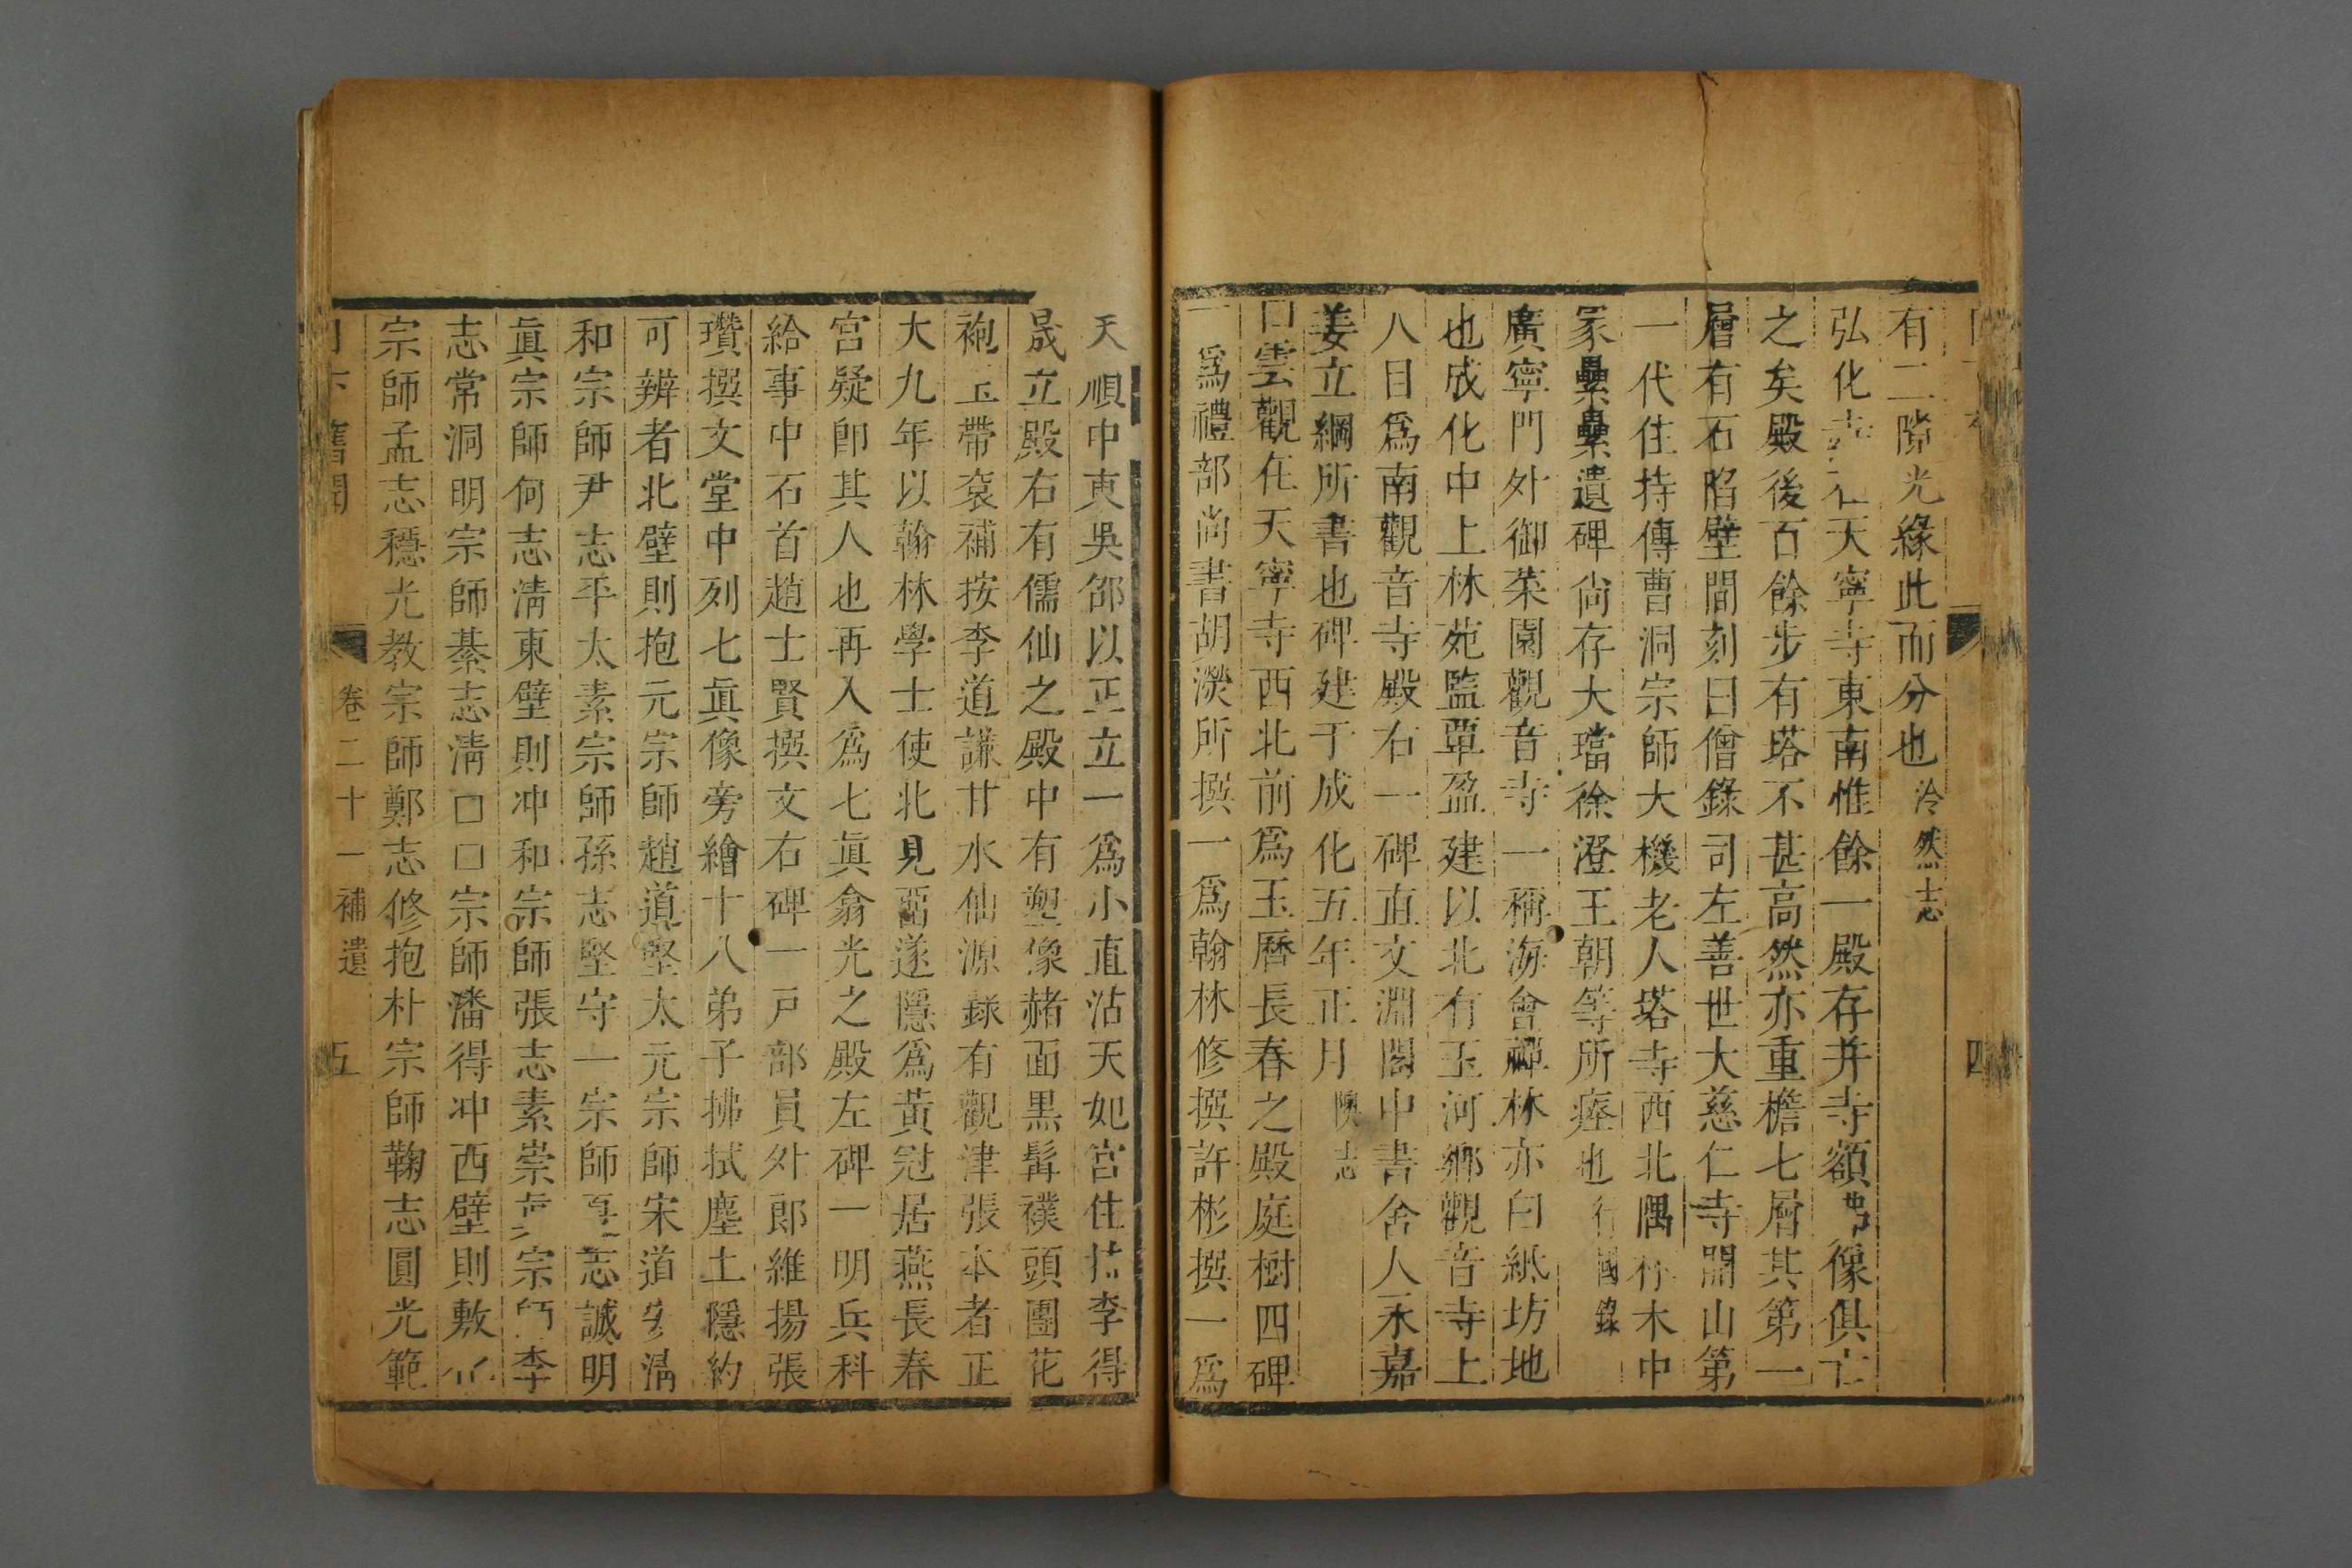 有二隙光緣此而分也 冷然志
弘化寺在天寧寺東南惟餘一殿存并寺額 像俱亡
之矣殿後百餘步有塔不甚高然亦重檐七層其第一
層有石陷壁間刻曰僧錄司左善世大慈仁寺開山第
一代住持傳曹洞宗師大機老人塔寺西北隅林木中
冢纍纍遺碑尚存大璫徐澄王朝等所瘞也 行國錄
廣寧門外御菜園觀音寺一稱海會禪林亦曰紙坊地
也成化中上林苑監覃盈建以北有玉河鄉觀音寺上
八日爲南觀音寺殿右一碑直文淵閣中書舍人永嘉
姜立綱所書也碑建于成化五年正月 隩志
白雲觀在天寧寺西北前爲玉曆長春之殿庭樹四碑
一爲禮部尚書胡濙所撰一爲翰林修撰許彬撰一爲
天順中東吳邵以正立一爲小直沽天妃宮住持李得
晟立殿右有儒仙之殿中有塑像赭面黑髯襆頭團花
袍玉帶袞補按李道謙甘水仙源錄有觀津張本者正
大九年以翰林學士使北見畱遂隱爲黃冠居燕長春
宮疑卽其人也再入爲七眞翕光之殿左碑一明兵科
給事中石首趙士賢撰文右碑一戶部員外郎維揚張
瓚撰文堂中列七眞像旁繪十八弟子拂拭塵土隱約
可辨者北壁則抱元宗師趙道堅太元宗師宋道安淸
和宗師尹志平太素宗師孫志堅守一宗師夏志誠明
眞宗師何志淸東壁則冲和宗師張志素崇 宗師李
志常洞明宗師綦志淸□□宗師潘得冲西壁則敷
宗師孟志穩光教宗師鄭志修抱朴宗師鞠志圓光範
舊聞 卷二十一補遺 五